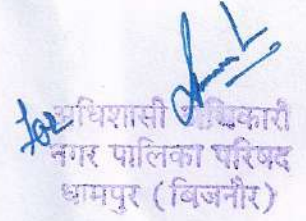 for अधिशासी अधिकारी
नगर पालिका परिषद
धामपुर (बिजनौर)